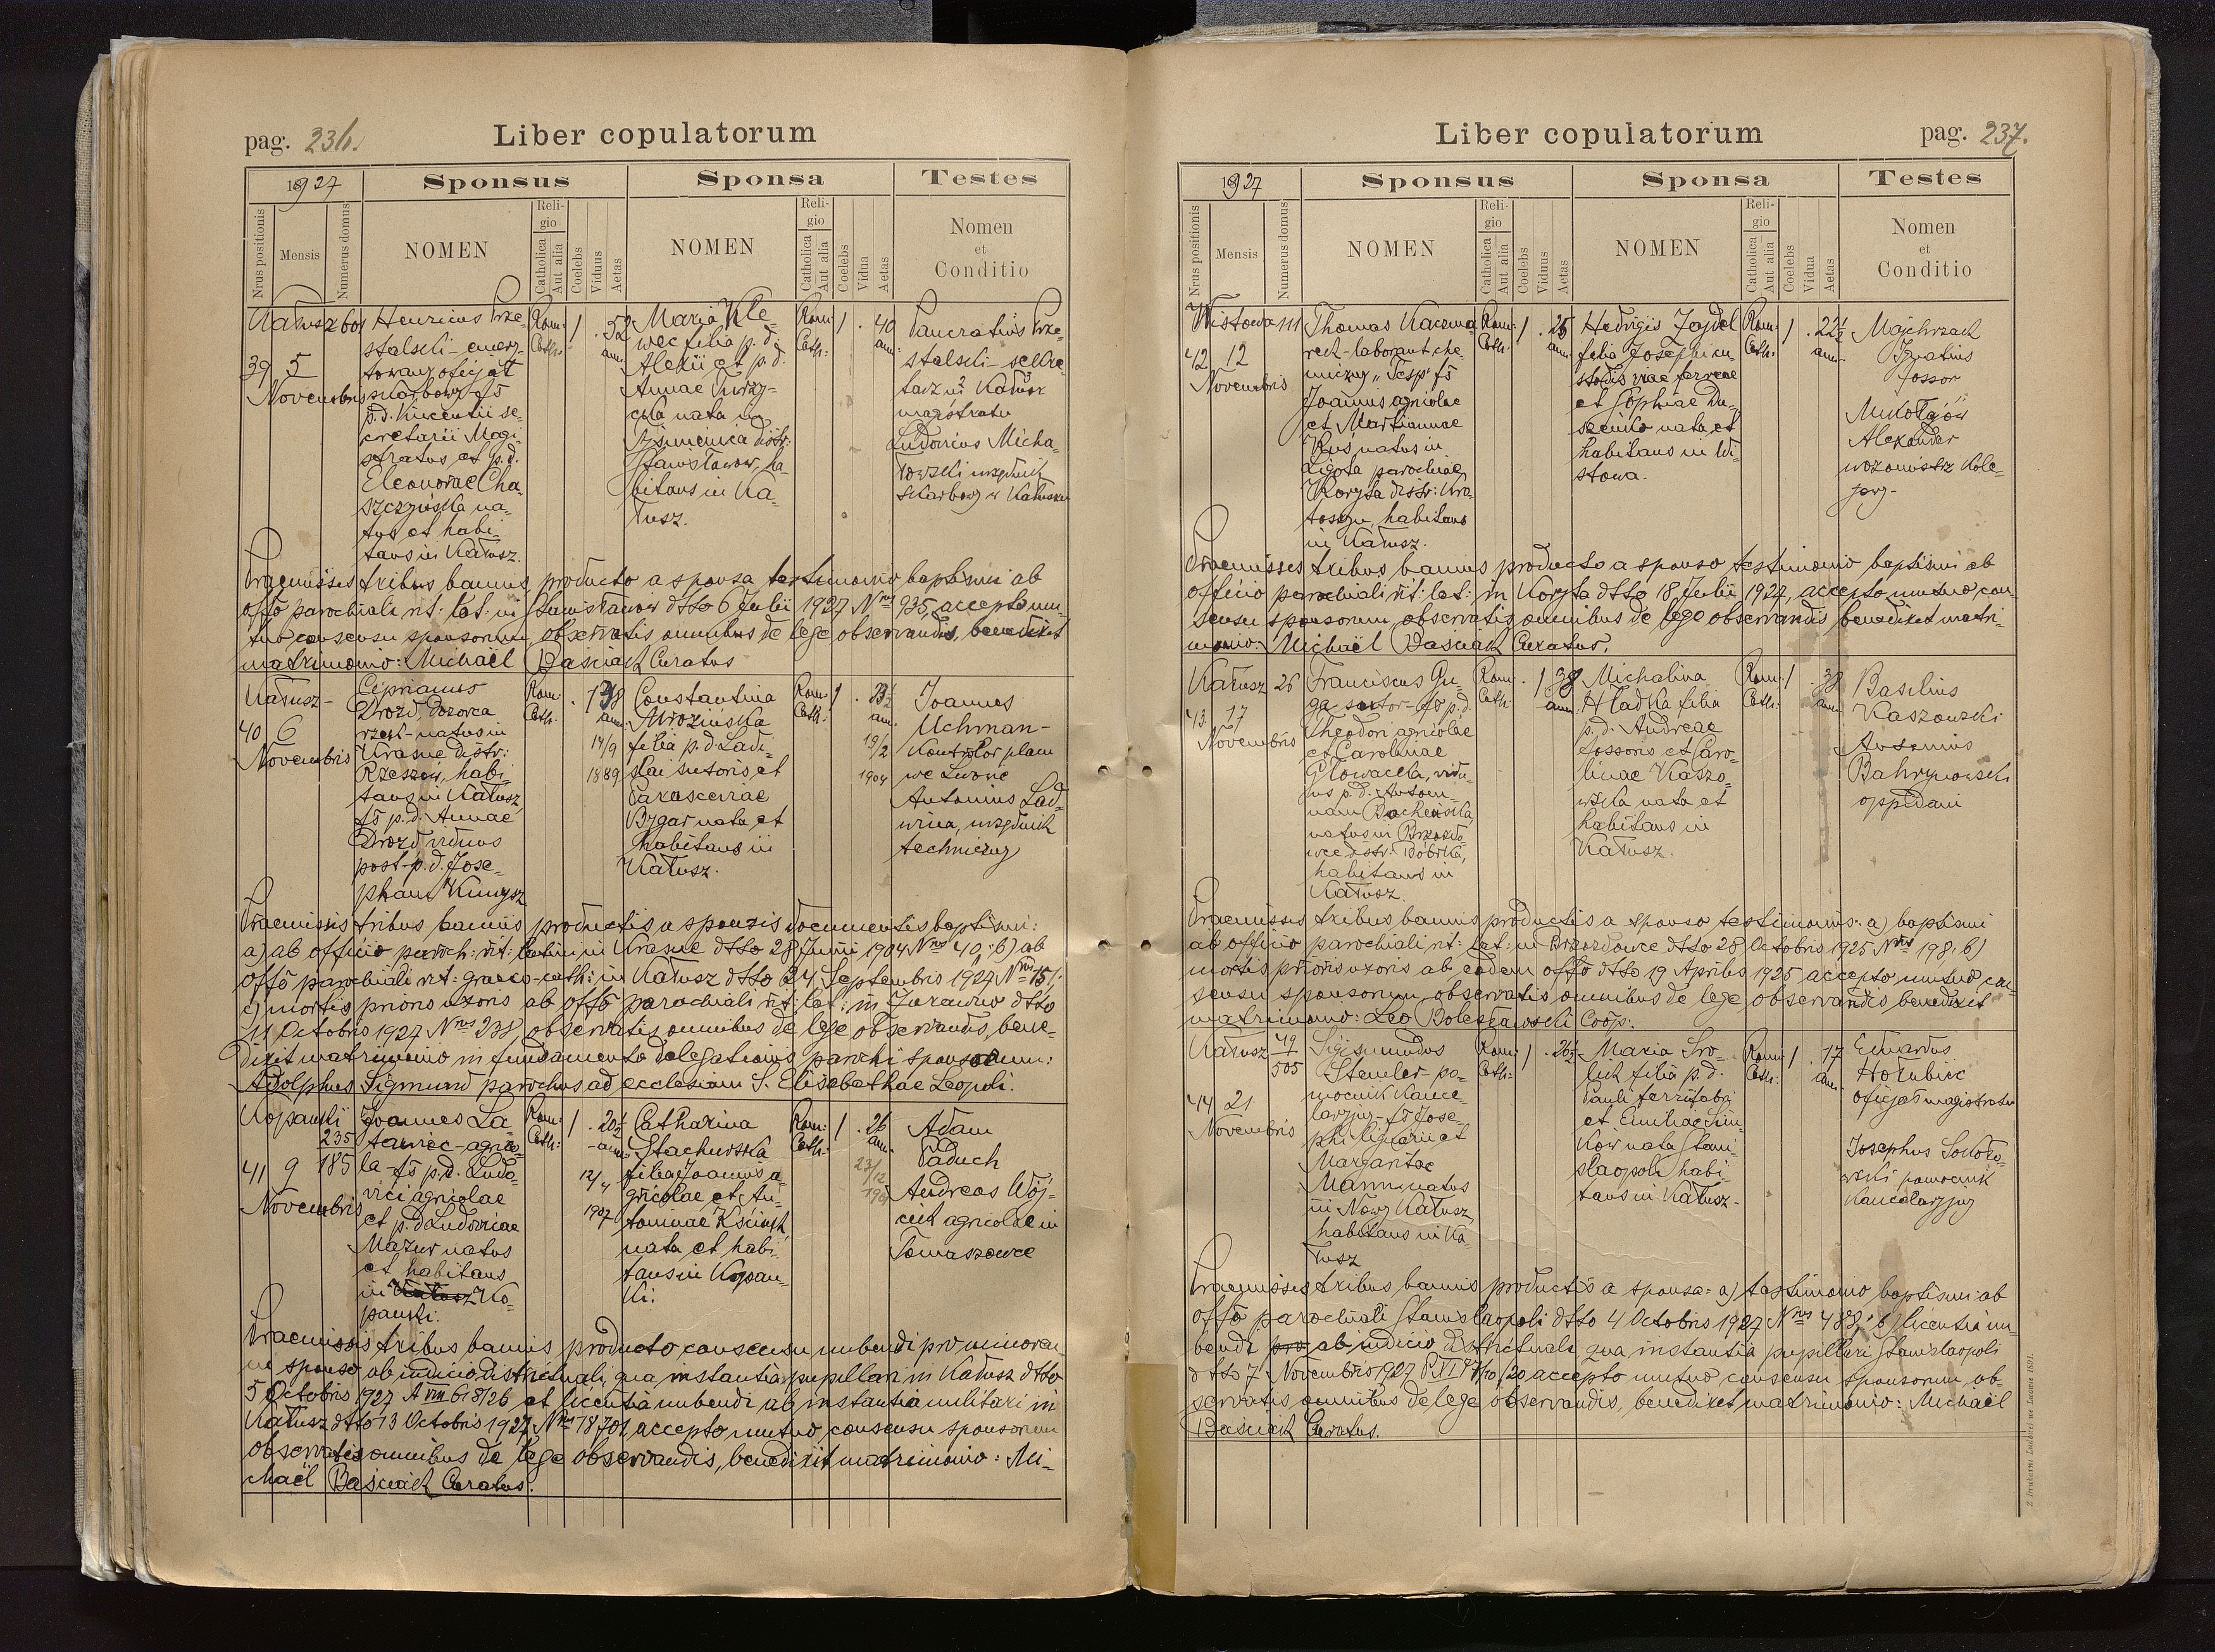 pag. 236.
Liber copulatorum
1927
Sponsus
Sponsa
Testes
Nrus positionis
Mensis
Numerus domus
NOMEN
Religio
Catholica
Aut alia
Coelebs
Viduus
Aetas
NOMEN
Religio
Catholica
Aut alia
Coelebs
Vidua
Aetas
Nomen
et
Conditio
Kałusz 601
39 5
Novembris
Henricus Prze-
stalski - emery-
towany oficjał
skarbowy fs
p.d. Vincentii se-
cretarii Magi-
stratus et p.d.
Eleonorae Cha-
szczyńska na-
tus et habi-
tans in Kałusz.
Rom. Cath. 1 . 52 ann.
Maria Kle-
wec filia p.d.
Alexii et p.d.
Annae
nata in
distr:
Stanisławow, ha-
bitans in Ka-
łusz.
Rom: Cath: 1 . 40 ann.
Pancratius Prze-
stalski - sekre-
tarz Kałusz
magistratu
Ludovicus Micha-
łowski urzędnik
skarbowy w Kałuszu
Praemissis tribus bannis, producto a sponsa testimonio baptismi ab
offo parochiali rit: lat: in Stanisławow dtto 6 Julii 1927 Nrus 935, accepto mu-
tuo consensu sponsorum, observatis omnibus de lege observandis, benedixit
matrimonio: Michaël Baściak Curatus
Kałusz -
40 6
Novembris
Ciprianus
Drozd, dozorca
rzek - natus in
Krasne distr:
Rzeszów, habi-
tans in Kałusz
fs p.d. Annae
Drozd viduus
post p.d. Jose-
pham Kunysz
Rom. Cath. . 1 38 ann.
14/9
1889
Constantina
Mrozińska
filia p.d. Ladi-
slai sutoris, et
Parascevae
Bygar nata et
habitans in
Kałusz.
Rom. Cath: 1 . 23½ an.
19/2
1904
Joannes
Uchman -
Kontrolor plam
we Lwowie
Antonius Lad-
urzędnik
techniczny
Praemissis tribus bannis productis a sponsis documentis baptismi:
a) ab officio paroch: rit: latini in Krasne dtto 28 Junii 1904 Nrus 40; b) ab
offo parochiali rit: graeco-cath: in Kałusz dtto 24 Septembris 1927 Nrus 151;
c) mortis prioris uxoris ab offo parochiali rit: lat: in Żurawno dtto
11 Octobris 1927 Nrus 238, observatis omnibus de lege observandis, bene-
dixit matrimonio in fundamento delegationis parochi sponsorum:
Adolphus Sigmund parochus ad ecclesiam S. Elisabethae Leopoli.
Kopanki
235
185
41 9
Novembris
Joannes La-
tawiec - agrico-
la - fs p.d. Ludo-
vici agricolae
et p.d. Ludovicae
Mazur natus
et habitans
in Kałusz Ko-
panki.
Rom: Cath: 1 . 20½ ann.
12/4
1907
Catharina
Stachurska
filia Joannis a-
gricolae et An-
toninae Kściuk
nata et habi-
tans in Kopan-
ki.
Rom: Cath: 1 . 26 an.
23/12
1901
Adam
Paduch
Andreas Wój-
cik agricolae in
Tomaszowce
Praemissis tribus bannis producto consensu nubendi pro minoren-
ne sponso ab iudicio districtuali, qua instantia pupillari in Kałusz dtto
5 Octobris 1927 A VIII 618/26 et licentia nubendi ab instantia militari in
Kałusz dtto 13 Octobris 1927 Nrus 18701 accepto mutuo consensu sponsorum
observatis omnibus de lege observandis, benedixit matrimonio: Mi-
chaël Baściak Curatus.
Liber copulatorum
pag. 237.
1927
Sponsus
Sponsa
Testes
Nrus positionis
Mensis
Numerus domus
NOMEN
Religio
Catholica
Aut alia
Coelebs
Viduus
Aetas
NOMEN
Religio
Catholica
Aut alia
Coelebs
Vidua
Aetas
Nomen
et
Conditio
Wistowa 111
42 12
Novembris
Thomas Kaczma-
rek - laborant che-
miczny "Tesp" fs
Joannis agricolae
et Martiannae
Kuś natus in
Ligota parochiae
Koryta distr: Kro-
toszyn, habitans
in Kałusz.
Rom: Cath: 1 . 25 ann.
Hedvigis Zajdel
filia Josephi cu-
stodis viae ferreae
et Sophiae Du-
szeńko nata et
habitans in Wi-
stowa.
Rom: Cath: 1 . 22½ ann.
Majchrzak
Ignatius
fossor
Mikołajów
Alexander
wozomistrz kole-
jowy -
Praemissis tribus bannis, producto a sponso testimonio baptismi ab
officio parochiali rit: lat: in Koryta dtto 18 Julii 1927, accepto mutuo con-
sensu sponsorum, observatis omnibus de lege observandis, benedixit matri-
monio: Michaël Baściak Curatus.
Kałusz 26
43 17
Novembris
Franciscus Gu-
ga sartor - fs p.d.
Theodori agricolae
et Carolinae
Głowacka, vidu-
us p.d. Anton-
nam Bacheńska,
natus in Brzozdo-
wce distr: Bóbrka,
habitans in
Kałusz
Rom. Cath: . 1 38 ann.
Michalina
Hladka filia
p.d. Andreae
fossoris et Caro-
linae Kaszo-
wska nata et
habitans in
Kałusz.
Rom: Cath: 1 . 38 ann.
Basilius
Kaszowski
Antonius
Bahrynowski
oppidani
Praemissis tribus bannis productis a sponso testimoniis: a) baptismi
ab officio parochiali rit: lat: in Brzozdowce dtto 28 Octobris 1925 Nrus 198; b)
mortis prioris uxoris ab eodem offo dtto 19 Aprilis 1925 accepto mutuo con-
sensu sponsorum, observatis omnibus de lege observandis benedixit
matrimonio: Leo Bolesławski Coop:.
Kałusz 49
505
44 21
Novembris
Sigismundus
Stenler po-
mocnik kance-
laryjny - fs Jose-
phi lignarii et
Margaritae
Mann, natus
in Nowy Kałusz,
habitans in Ka-
łusz
Rom: Cath: 1 . 26½
Maria Sro-
lich filia p.d.
Pauli ferrifabri
et Emiliae Sim-
kow nata Stani-
slaopoli habi-
tans in Kałusz -
Rom: Cath: 1 . 17 an.
Eduardus
Hołubiec
oficjał magistratu
Josephus Sokoło-
wski pomocnik
kancelaryjny
Praemissis tribus bannis productis a sponsa: a) testimonio baptismi ab
offo parochiali Stanislaopoli dtto 4 Octobris 1927 Nrus 488; b) licentia nu-
bendi pro ab iudicio districtuali, qua instantia pupillari Stanislaopoli
dtto 7 Novembris 1927 accepto mutuo consensu sponsorum, ob-
servatis omnibus de lege observandis, benedixit matrimonio: Michaël
Baściak Curatus.
Z Drukarni Ludowej we Lwowie 1891.